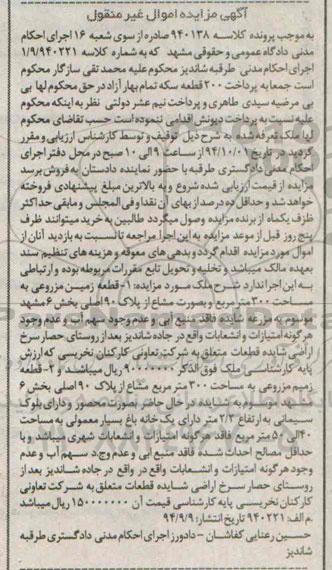 آگهی مزایده اموال غیر منقول
به موجب پرونده کلاسه ۹۴۰۱۳۸ صادره از سوی شعبه ۱۶ اجرای احکام
مدنی دادگاه عمومی و حقوقی مشهد که به شماره کلاسه ۱/۹/۹۴۰۲۲۱
اجرای احکام مدنی طرقبه شاندیز محکوم علیه محمد تقی سازگار محکوم
است جمعا به پرداخت ۲۰۰ قطعه سکه تمام بهار آزاد در حق محکوم لها بی
بی مرضیه سیدی طاهری و پرداخت نیم عشر دولتی نظر به اینکه محکوم
علیه نسبت به پرداخت دیونش اقدامی ننموده است حسب تقاضای محکوم
لها ملک تعرفه شده به شرح ذیل توقیف و توسط کارشناس ارزیابی و مقرر
گردید در تاریخ ۹۴/۱۰/۰۱ از ساعت ۹ الی ۱۰ صبح در محل دفتر اجرای
احکام مدنی دادگستری طرقبه با حضور نماینده دادستان به فروش برسد
مزایده از قیمت ارزیابی شده شروع و به بالاترین مبلغ پیشنهادی فروخته
خواهد شد و حداقل ده درصد از بهای آن نقدا و فی المجلس و مابقی حداکثر
ظرف یکماه از برنده مزایده وصول میگردد طالبین به خرید میتوانند ظرف
پنج روز قبل از موعد مزایده به این اجرا مراجعه تا نسبت به بازدید آنان از
اموال مورد مزایده اقدام گردد و بدهی های معوقه و هزینه های تنظیم سند
بعهده مالک میباشد و تخلیه و تحویل تابع مقررات مربوطه بوده و ارتباطی
به این اجرا ندارد شرح ملک مورد مزایده: ۱-قطعه زمین مزروعی به
مساحت ۳۰۰ متر مربع و بصورت مشاع از پلاک ۹۰ اصلی بخش ۶ مشهد
موسوم به مزرعه شایده فاقد منبع آبی و عدم وجود سهم آب و عدم وجود
هرگونه امتیازات و انشعابات واقع در جاده شاندیز بعد از روستای حصار سرخ
اراضی شایده قطعات متعلق به شرکت تعاونی کارکنان نخریسی که ارزش
پایه کارشناسی ملک فوق الذکر ۹۰۰۰۰۰۰۰ ریال میباشد. ۲-قطعه
زمین مزروعی به مساحت ۳۰۰ متر مربع مشاع از پلاک ۹۰ اصلی بخش ۶
مشهد موسوم به شایده در حال حاضر بصورت محصور و دارای بلوک
سیمانی به ارتفاع ۲/۳ متر دارای یک خانه باغ بسیار معمولی به مساحت
۴۰ الی ۵۰ متر مربع فاقد هرگونه امتیازات و انشعابات شهری میباشد و با
حداقل مصالح احداث شده فاقد منبع آبی و عدم وجود سهم آب و عدم
وجود هرگونه امتیازات و انشعابات واقع در واقع در جاده شاندیز بعد از
روستای حصار سرخ اراضی شایده قطعات متعلق به شرکت تعاونی
کارکنان نخریسی پایه کارشناسی قیمت آن ۱۵۰۰۰۰۰۰۰ ریال میباشد
.م الف: ۹۴۰۲۲۱ تاریخ انتشار: ۹۴/۹/۹
حسین رعنایی کفاشان - دادورز اجرای احکام مدنی دادگستری طرقبه
شاندیز